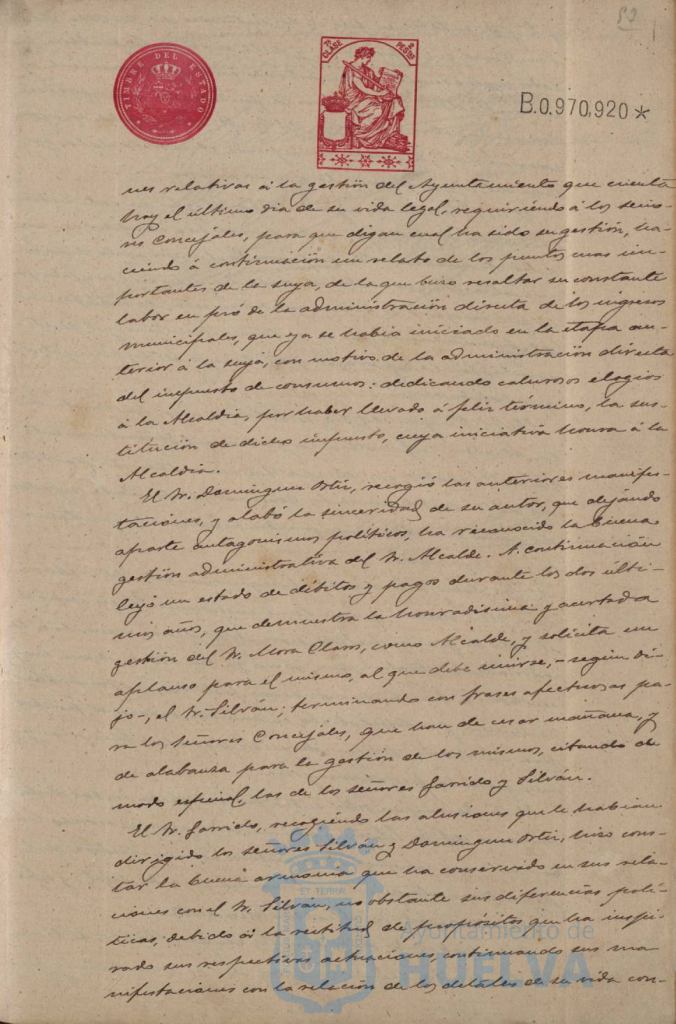 59
TIMBRE DEL ESTADO
7ª CLASE
2 PESETAS
B.0,970,920 *
nes relativas á la gestión del Ayuntamiento que cuenta
hoy el último dia de su vida legal, requiriendo á los seño-
res Concejales, para que digan cual ha sido su gestión, ha-
ciendo á continuación un relato de los puntos mas im-
portantes de la suya, de la que hizo resaltar su constante
labor en pró de la administración directa de los ingresos
municipales, que ya se habia iniciado en la etapa an-
terior á la suya, con motivo de la administración directa
del impuesto de consumos: dedicando calurosos elogios
á la Alcaldia, por haber llevado á feliz término, la sus-
titución de dicho impuesto, cuya iniciativa honra á la
Alcaldia.
El Sr. Dominguez Ortiz, recogió las anteriores manifes-
taciones, y alabó la sinceridad de su autor, que dejando
aparte antagonismos políticos, ha reconocido la buena
gestión administrativa del Sr. Alcalde. A continuación
leyó un estado de débitos y pagos durante los dos últi-
mos años, que demuestra la honradisima y acertada
gestión del Sr. Mora Claros, como Alcalde, y solicita un
aplauso para el mismo, al que debe unirse, - según di-
jo-, el Sr. Silván; terminando con frases afectuosas pa-
ra los Señores Concejales, que han de cesar mañana, y
de alabanza para la gestión de los mismos, citando de
modo especial, las de los señores Garrido y Silván.
El Sr. Garrido, recogiendo las alusiones que le habian
dirigido los señores Silván y Dominguez Ortiz, hizo cons-
tar la buena armonia que ha conservado en sus rela-
ciones con el Sr. Silván, no obstante sus diferencias polí-
ticas, debido á la rectitud de propósitos que ha inspi-
rado sus respectivas actuaciones, continuando sus ma-
nifestaciones con la relación de los detalles de su vida con-
Ayuntamiento de
HUELVA